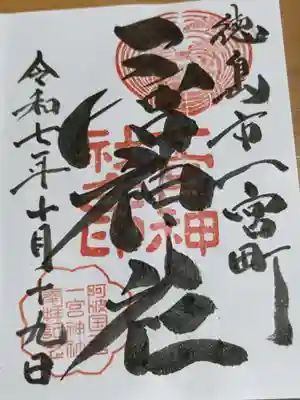 徳島市一宮町
一宮神社
令和七年十月十九日
一宮神
社之印
阿波国
一宮神社